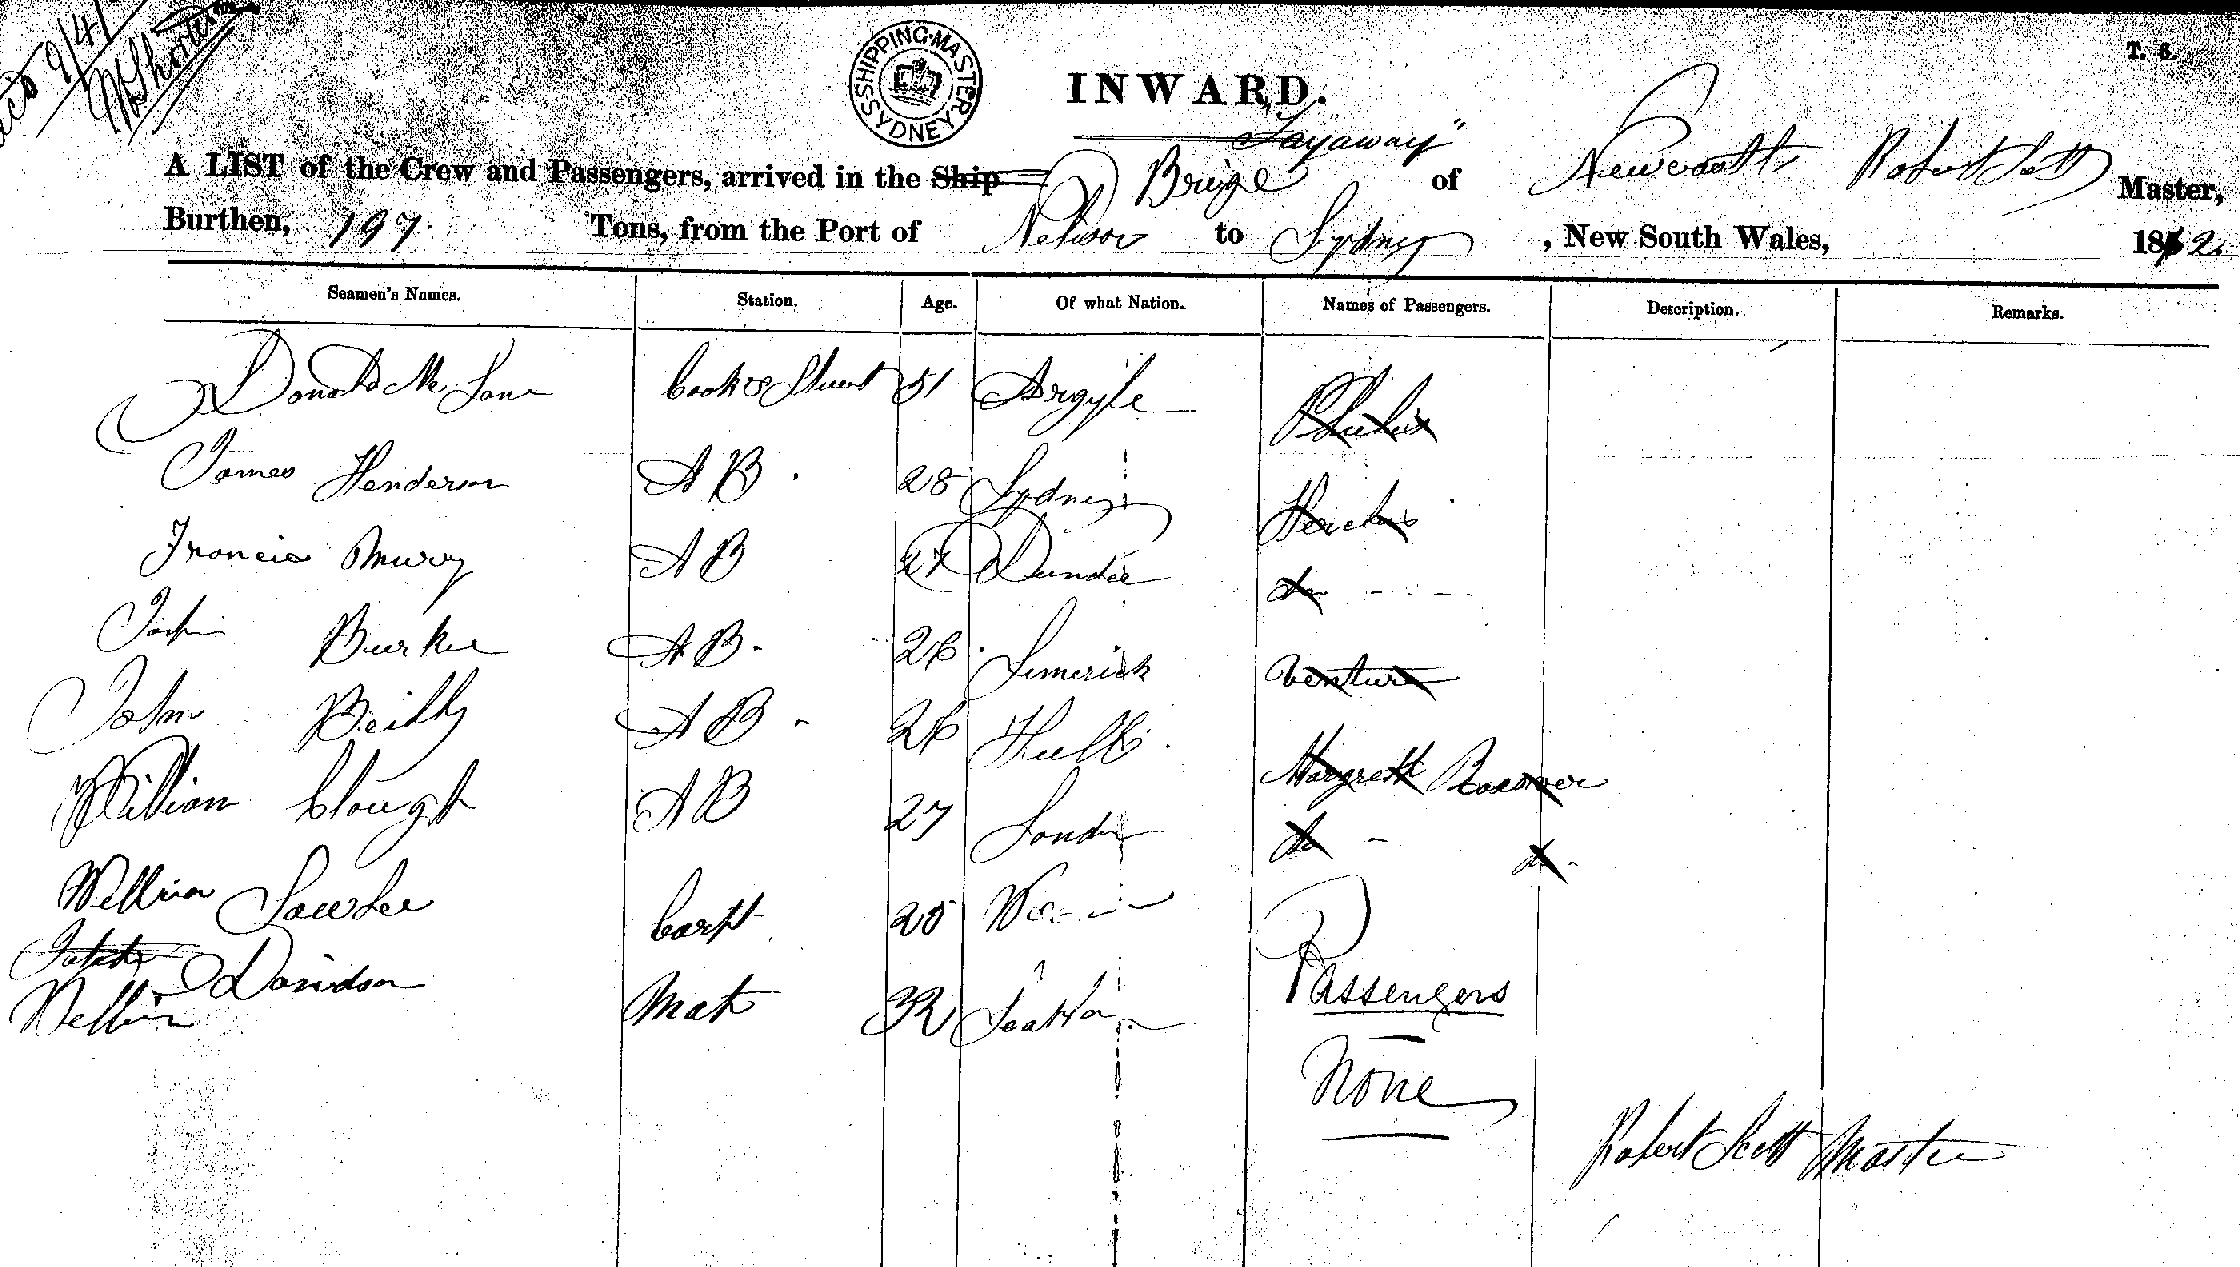 SHIPPING MASTER SYDNEY
T. 6.
INWARD.
"Jayaway"
A LIST of the Crew and Passengers, arrived in the Ship Brige of Newcastle Robert Scott Master,
Burthen, 197 Tons, from the Port of Nelson to Sydney, New South Wales, 1862
Seamen's Names. Station. Age. Of what Nation. Names of Passengers. Description. Remarks.
Donald Mc Lane Cook & Stuert 51 Argyle
James Henderson A B 28 Sydney
Francis Murry A B 27 Dundee
John Burke A B 26 Limerick Venture
John Reilly A B 26 Hull
William Clough A B 27 London Margrett
William Cart 20
Davidson
William Mate 32
Passengers
None
Robert Scott Master